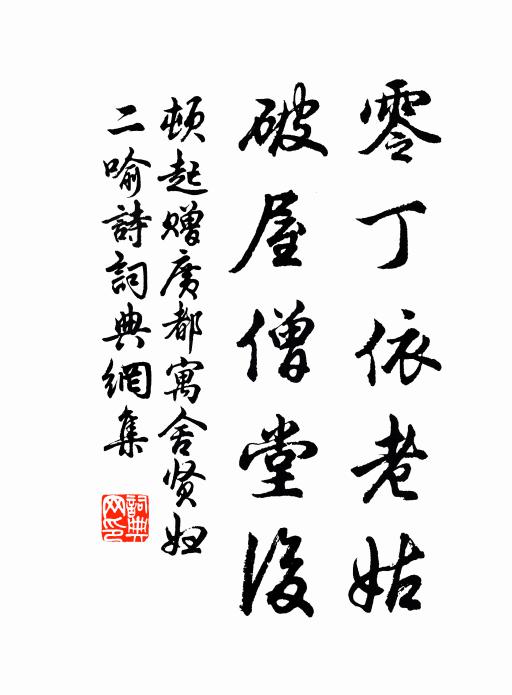 零丁依老姑
破屋僧堂後
頓起贈廣都寓舍贤妇
二喻詩詞典網集
詞典
网印